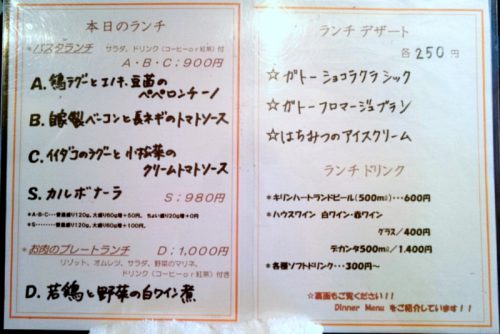 本日のランチ
*パスタランチ サラダ、ドリンク(コーヒーor紅茶)付
A・B・C:900円
A. 鶏ラグーとエノキ、豆苗の
ペペロンチーノ
B. 自家製ベーコンと長ネギのトマトソース
C. イイダコのラグーと小松菜の
クリームトマトソース
S. カルボナーラ S:980円
*お肉のプレートランチ D:1,000円
リゾット、オムレツ、サラダ、野菜のマリネ、
ドリンク(コーヒーor紅茶)付き
D. 若鶏と野菜の白ワイン煮
ランチ デザート
各250円
☆ガトーショコラクラシック
☆ガトーフロマージュブラン
☆はちみつのアイスクリーム
ランチ ドリンク
*キリンハートランドビール(500ml)・・・600円
*ハウスワイン 白ワイン・赤ワイン
グラス/400円
デカンタ500ml/1,400円
*各種ソフトドリンク・・・300円~
☆裏面もご覧ください!!
Dinner Menu をご紹介しています!!